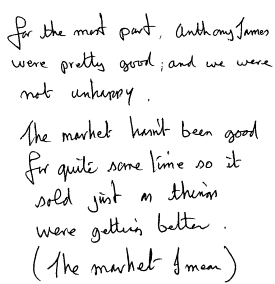 for the most part, Anthony James
were pretty good; and we were
not unhappy.
The market hasn't been good
for quite some time so it
sold just as things
were getting better.
(The market I mean)